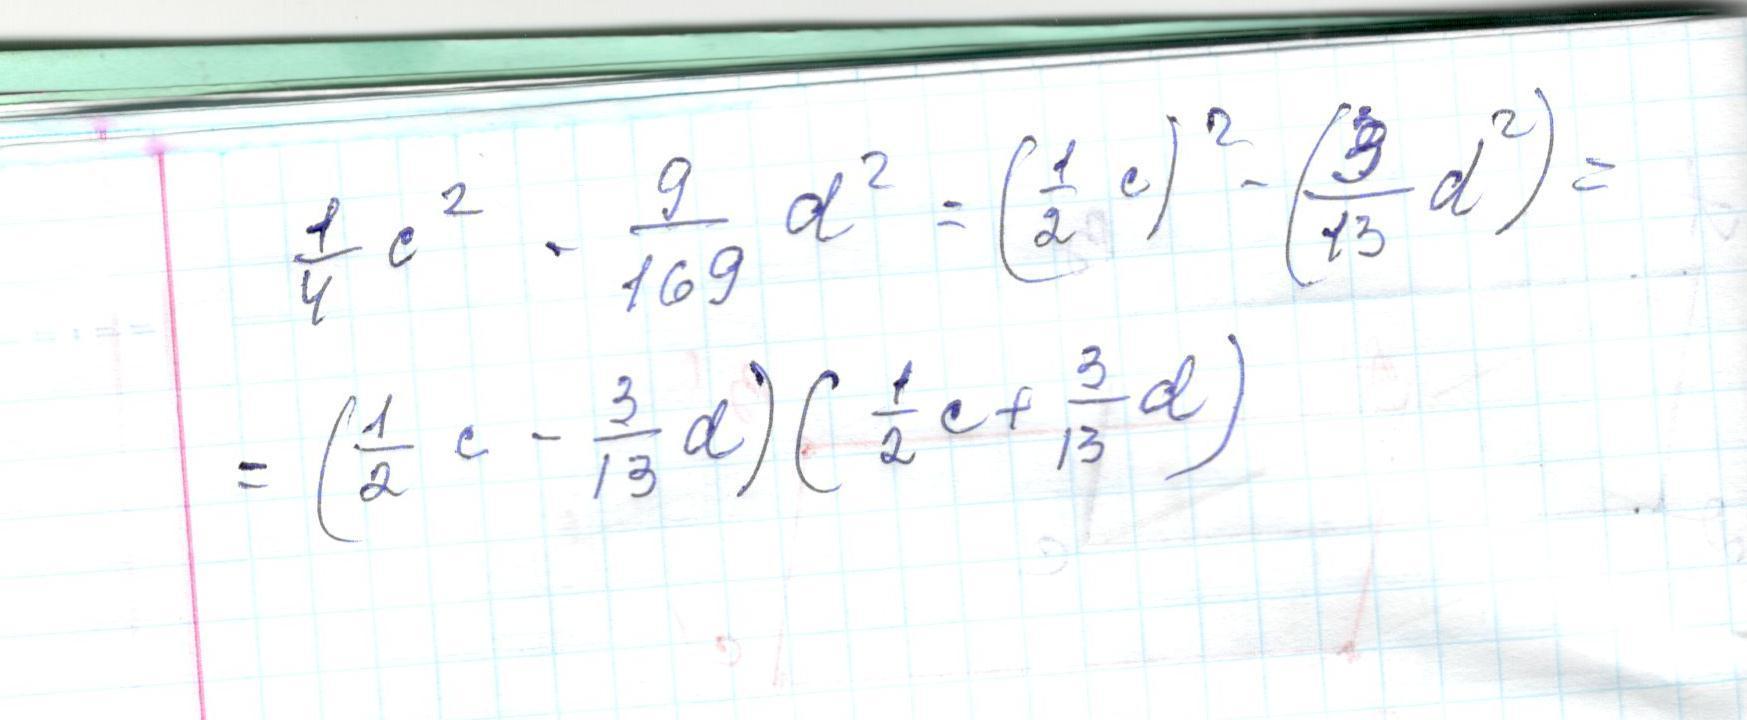 1/4 c² - 9/169 d² = (1/2 c)² - (3/13 d²) =
= (1/2 c - 3/13 d)(1/2 c + 3/13 d)